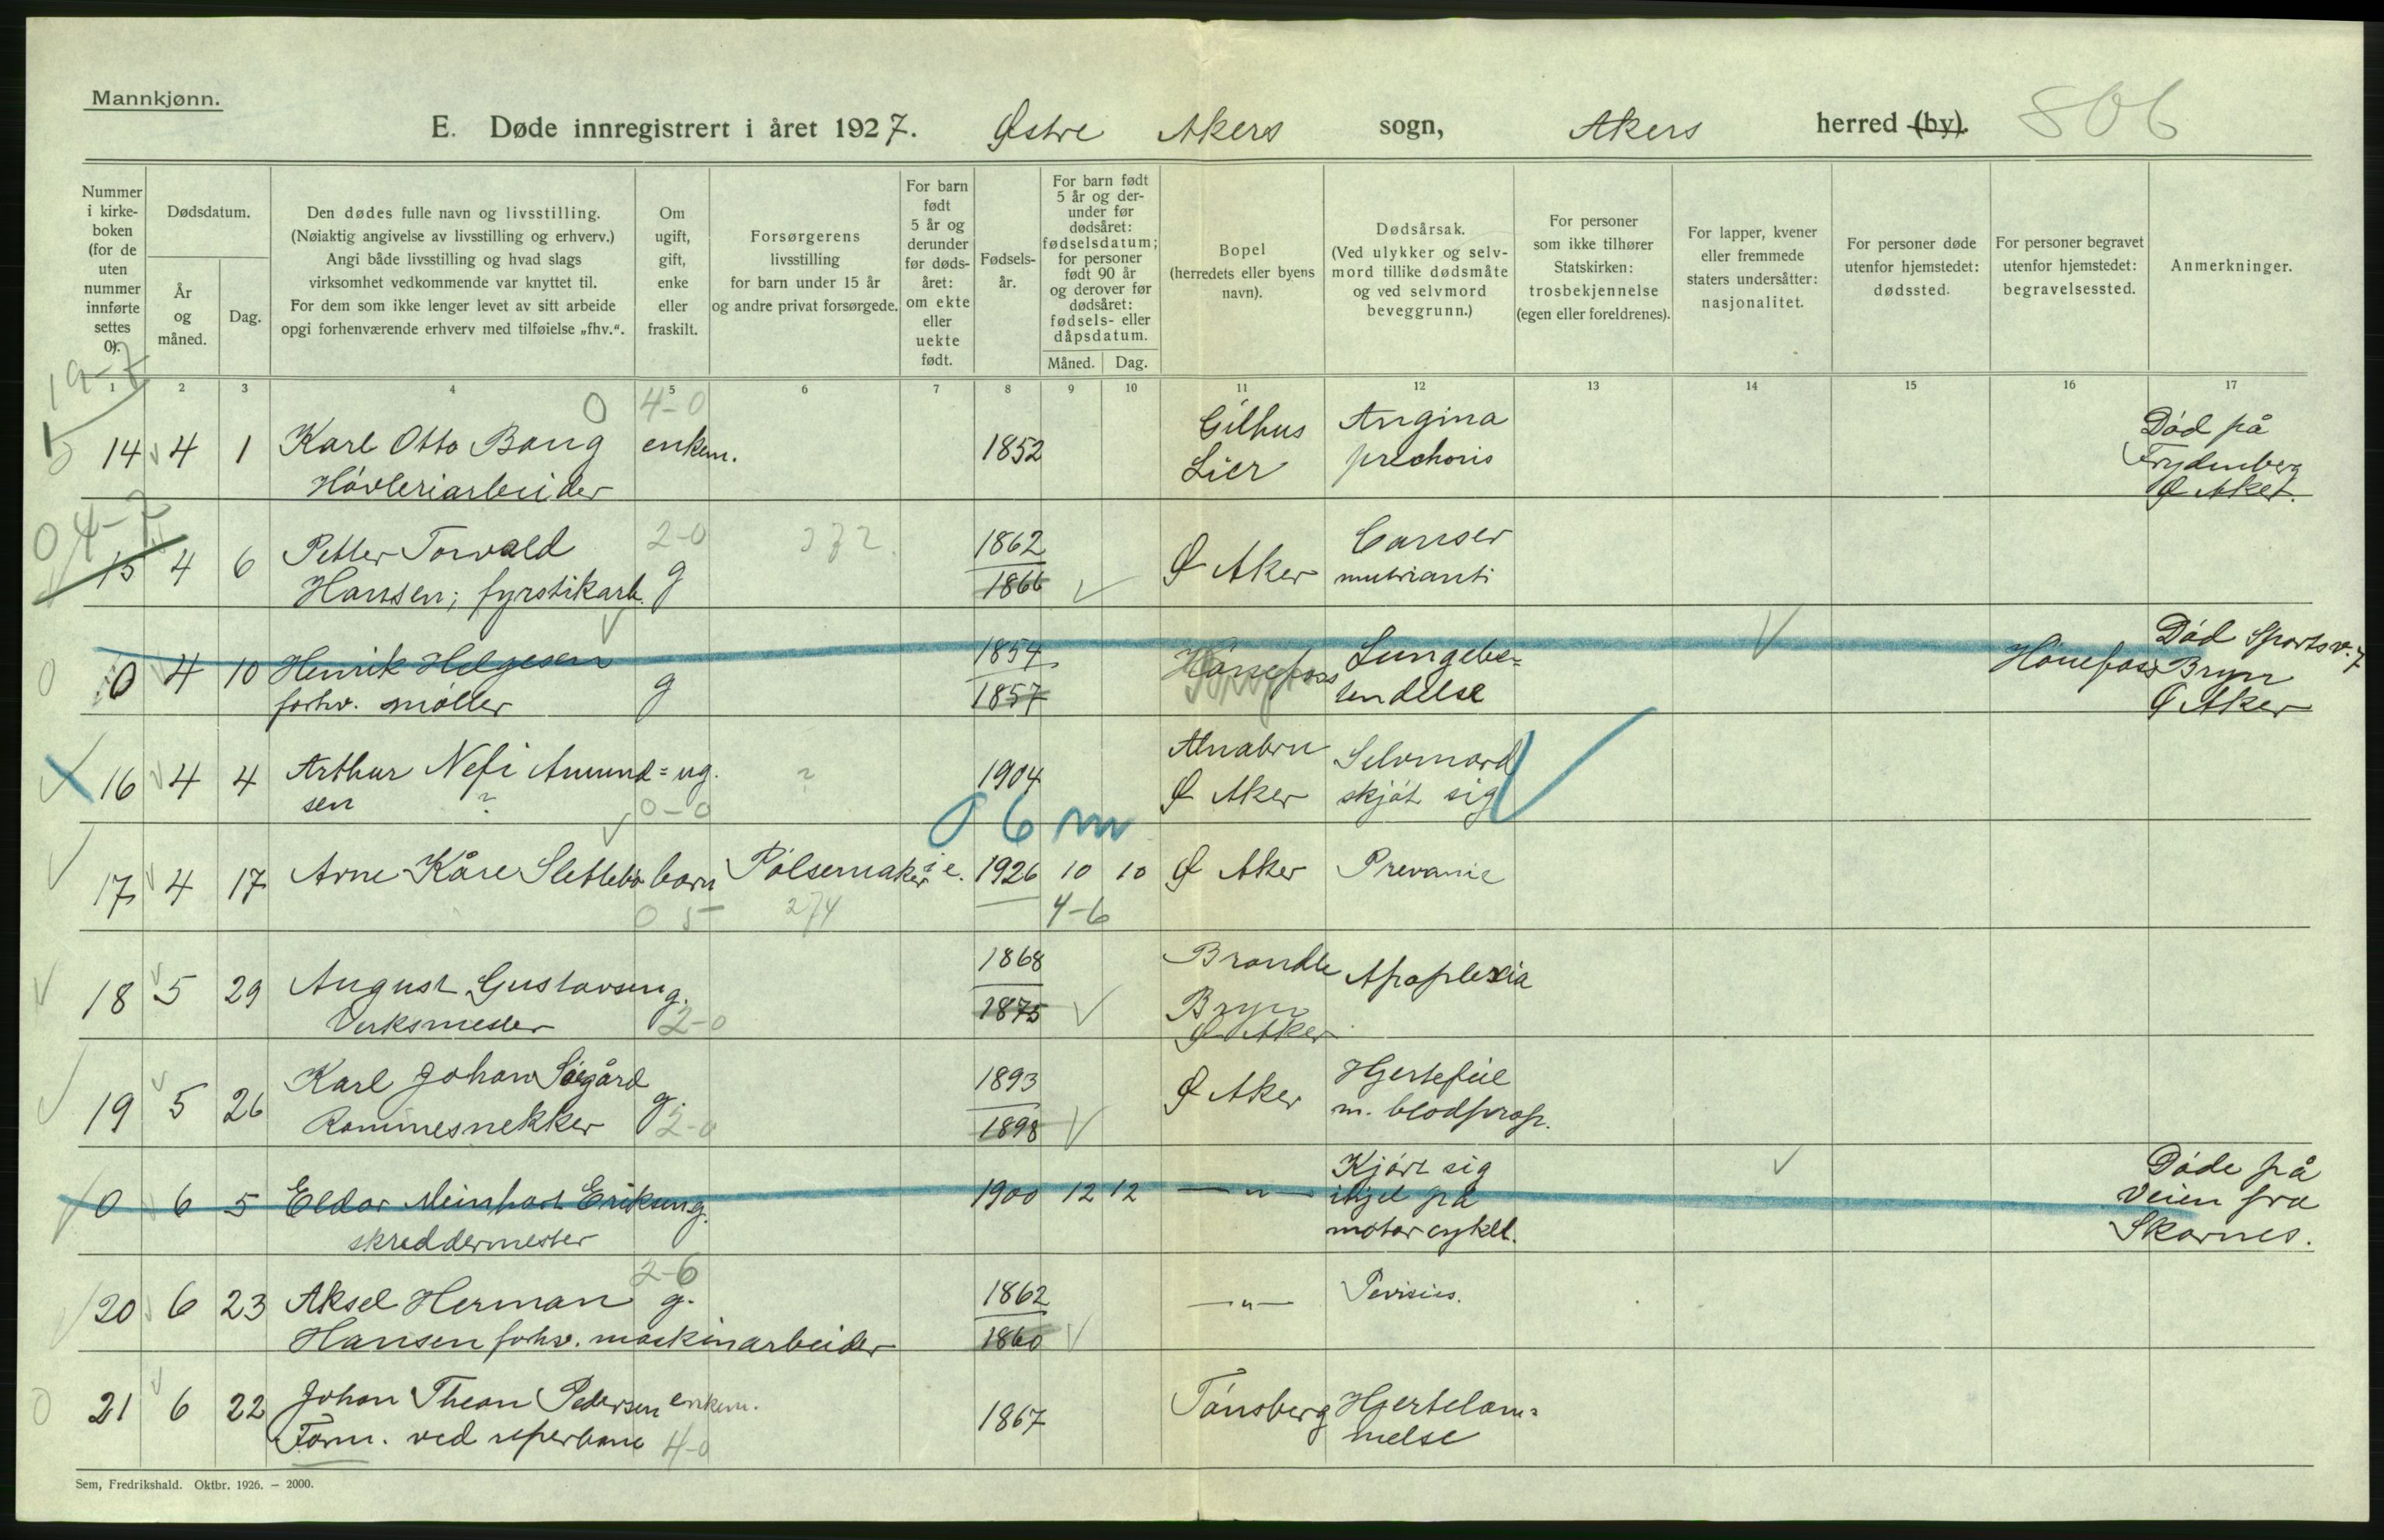 Mannkjønn.
E. Døde innregistrert i året 1927. Østre Akers sogn, Akers herred (by). 806
Nummer i kirke-boken (for de uten nummer innførte settes 0).
Dødsdatum.
År og måned.
Dag.
Den dødes fulle navn og livsstilling.
(Nøiaktig angivelse av livsstilling og erhverv.)
Angi både livsstilling og hvad slags
virksomhet vedkommende var knyttet til.
For dem som ikke lenger levet av sitt arbeide
opgi forhenværende erhverv med tilføielse „fhv.“.
Om ugift, gift, enke eller fraskilt.
Forsørgerens
livsstilling
for barn under 15 år
og andre privat forsørgede.
For barn født 5 år og derunder før døds-året: om ekte eller uekte født.
Fødsels-år.
For barn født 5 år og der-under før dødsåret: fødselsdatum; for personer født 90 år og derover før dødsåret: fødsels- eller dåpsdatum.
Måned. Dag.
Bopel
(herredets eller byens
navn).
Dødsårsak.
(Ved ulykker og selv-
mord tillike dødsmåte
og ved selvmord
beveggrunn.)
For personer
som ikke tilhører
Statskirken:
trosbekjennelse
(egen eller foreldrenes).
For lapper, kvener
eller fremmede
staters undersåtter:
nasjonalitet.
For personer døde
utenfor hjemstedet:
dødssted.
For personer begravet
utenfor hjemstedet:
begravelsessted.
Anmerkninger.
1 2 3 4 5 6 7 8 9 10 11 12 13 14 15 16 17
19-7
0 4-0
14 4 1 Karl Otto Bang enkem. 1852 Gilhus Angina Død på
Høvleriarbeider Lier Frydenberg
Ø Aker.
04-7
15 4 6 Petter Torvald 2-0 1862 Ø Aker Canser
Hansen; fyrstikarb. g 1866
0 4 10 Henrik Helgesen g 1854 Hønefoss Lungebe= Hønefoss Død Sportsv. 7
forhv. møller 1857 tendelse Bryn
Ø Aker
16 4 4 Arthur Nefi Amund= ug. ? 1904 Alnabru Selvmord
sen ? 0-0 Ø Aker skjøt sig
0 6 m
17 4 17 Arne Kåre barn Pølsemaker e. 1926 10 10 Ø Aker
0 5 274 4-6
18 5 29 August Gustavsen g. 1868 Apoplexia
Verksmester 2-0 1875 Bryn
Ø Aker
19 5 26 Karl Johan Søegård g. 1893 Ø Aker Hjertefeil
Rammesnekker 2-0 1898 m. blodprop.
0 6 5 Eldar Meinhart Eriksen g. 1900 12 12 —"— Kjørt sig Døde på
skreddermester ihjel på Veien fra
motorcykel. Skarnes.
2-6
20 6 23 Aksel Herman g. 1862 —"—
Hansen forhv. maskinarbeider 1860
21 6 22 Johan Thean Pedersen enkem. 1867 Tønsberg Hjertelam=
Form. ved reperbane 4-0 melse
Sem, Fredrikshald. Oktbr. 1926. – 2000.